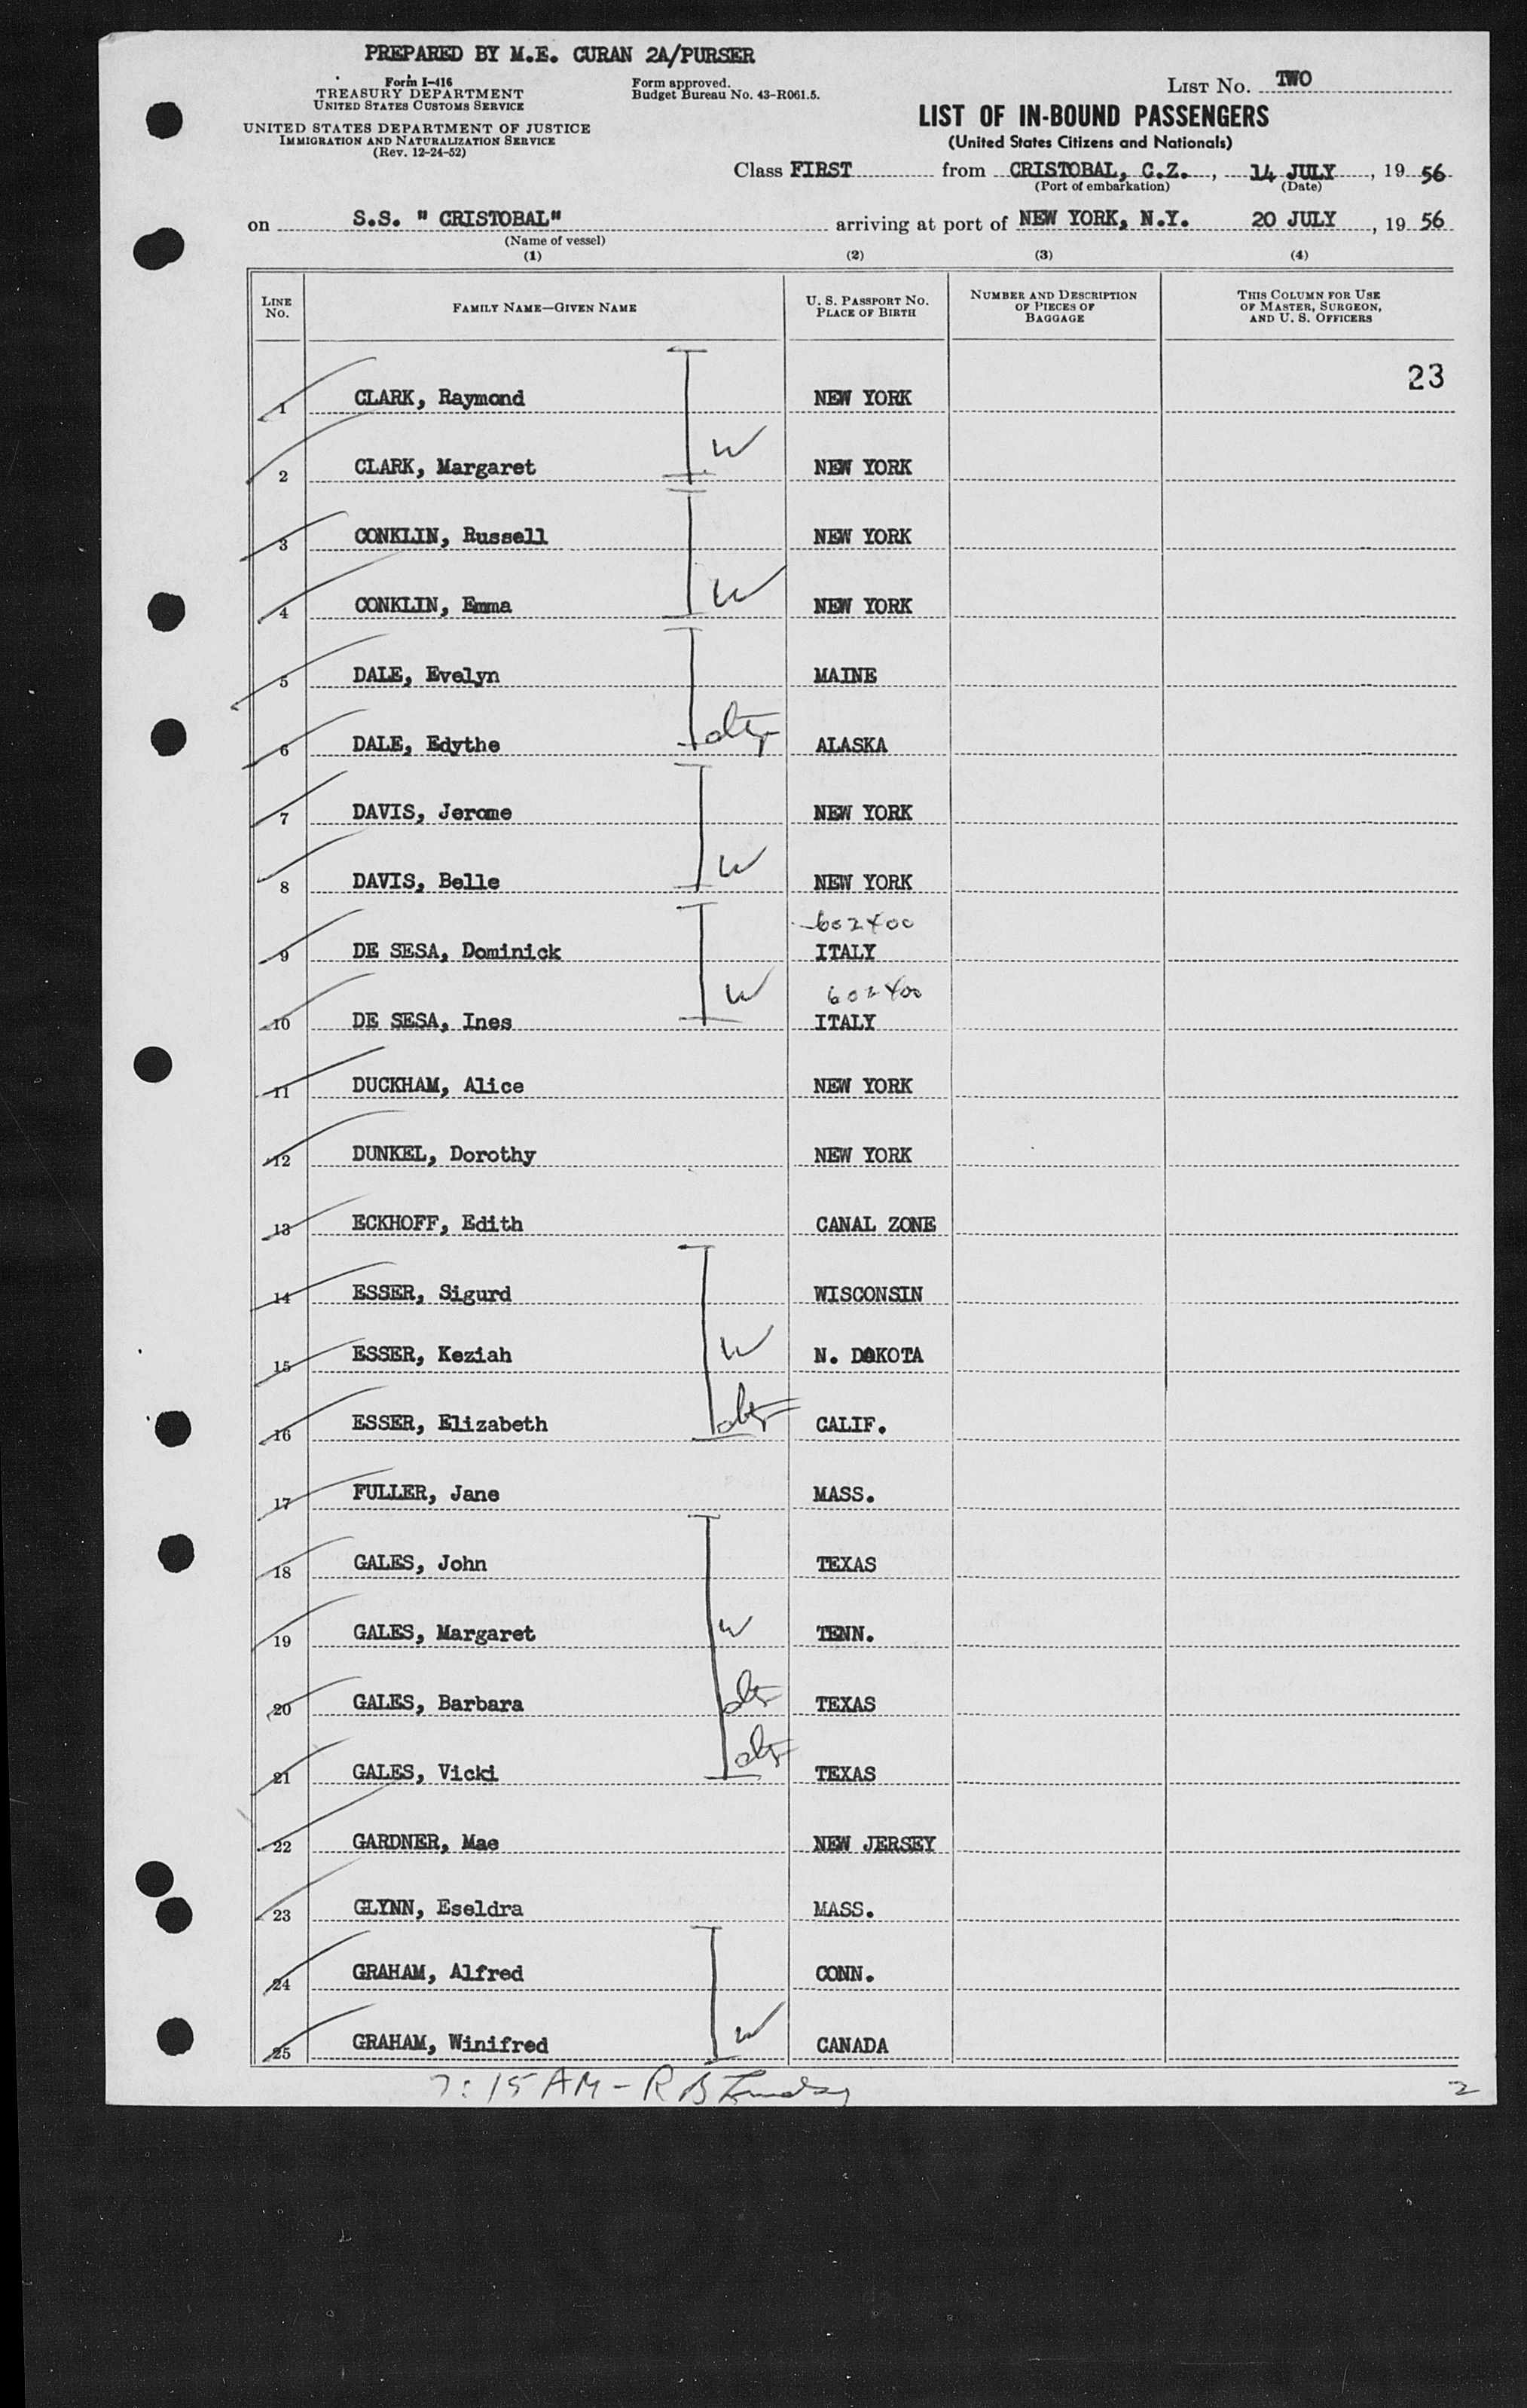 PREPARED BY M.E. CURAN 2A/PURSER
Form I-416
TREASURY DEPARTMENT
UNITED STATES CUSTOMS SERVICE
Form approved.
Budget Bureau No. 43-R061.5.
LIST NO. TWO
UNITED STATES DEPARTMENT OF JUSTICE
IMMIGRATION AND NATURALIZATION SERVICE
(Rev. 12-24-52)
LIST OF IN-BOUND PASSENGERS
(United States Citizens and Nationals)
Class FIRST from CRISTOBAL, C.Z., 14 JULY, 19 56
(Port of embarkation) (Date)
on S.S. " CRISTOBAL" arriving at port of NEW YORK, N.Y. 20 JULY, 19 56
(Name of vessel)
(1) (2) (3) (4)
LINE NO. FAMILY NAME—GIVEN NAME U. S. PASSPORT NO. PLACE OF BIRTH NUMBER AND DESCRIPTION OF PIECES OF BAGGAGE THIS COLUMN FOR USE OF MASTER, SURGEON, AND U. S. OFFICERS
23
1 CLARK, Raymond NEW YORK
2 CLARK, Margaret W NEW YORK
3 CONKLIN, Russell NEW YORK
4 CONKLIN, Emma W NEW YORK
5 DALE, Evelyn MAINE
6 DALE, Edythe dtr ALASKA
7 DAVIS, Jerome NEW YORK
8 DAVIS, Belle W NEW YORK
602400
9 DE SESA, Dominick ITALY
602400
10 DE SESA, Ines W ITALY
11 DUCKHAM, Alice NEW YORK
12 DUNKEL, Dorothy NEW YORK
13 ECKHOFF, Edith CANAL ZONE
14 ESSER, Sigurd WISCONSIN
15 ESSER, Keziah W N. DAKOTA
16 ESSER, Elizabeth dtr CALIF.
17 FULLER, Jane MASS.
18 GALES, John TEXAS
19 GALES, Margaret W TENN.
20 GALES, Barbara dtr TEXAS
21 GALES, Vicki dtr TEXAS
22 GARDNER, Mae NEW JERSEY
23 GLYNN, Eseldra MASS.
24 GRAHAM, Alfred CONN.
25 GRAHAM, Winifred W CANADA
7:15 AM - R B
2